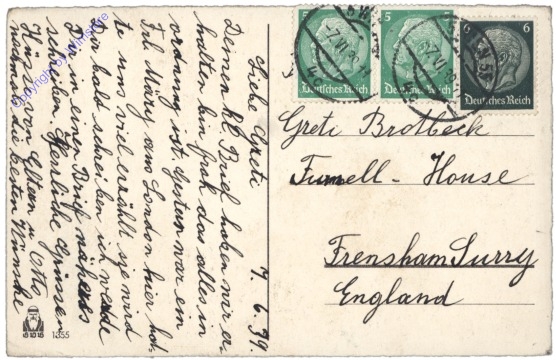 7. 6. 39.
Liebe Greti
Deinen lb. Brief haben wir er-
halten bin froh das alles in
ordnung ist. gestern war ein
Frl. März aus London hier hat-
te uns viel erzählt sie wird
Dir bald schreiben ich werde
Dir in einen Brief näheres
schreiben. Herzliche Grüsse u.
Küsse von Eltern u. Otto
die besten Wünsche
Greti Brotbeck
Furnell - House
Frensham Surry
England
5
Deutsches Reich
5
Deutsches Reich
6
6
Deutsches Reich
1355